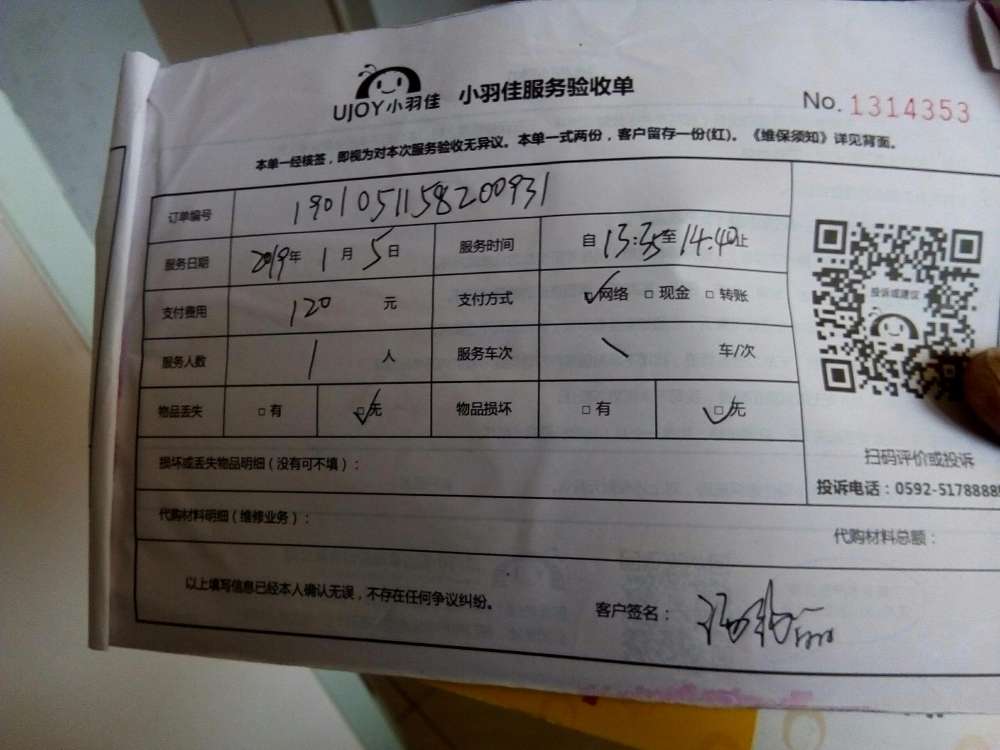 UJOY小羽佳 小羽佳服务验收单 No. 1314353
本单一经核签，即视为对本次服务验收无异议。本单一式两份，客户留存一份(红)。《维保须知》详见背面。
订单编号 1901051158200931
服务日期 2019年 1月 5日 服务时间 自 13:35至14:40止
支付费用 120 元 支付方式 ☑网络 □现金 □转账
服务人数 1 人 服务车次 \ 车/次
物品丢失 □有 ☑无 物品损坏 □有 ☑无
投诉或建议
扫码评价或投诉
投诉电话：0592-5178888
损坏或丢失物品明细（没有可不填）：
代购材料明细（维修业务）： 代购材料总额：
以上填写信息已经本人确认无误，不存在任何争议纠纷。 客户签名：